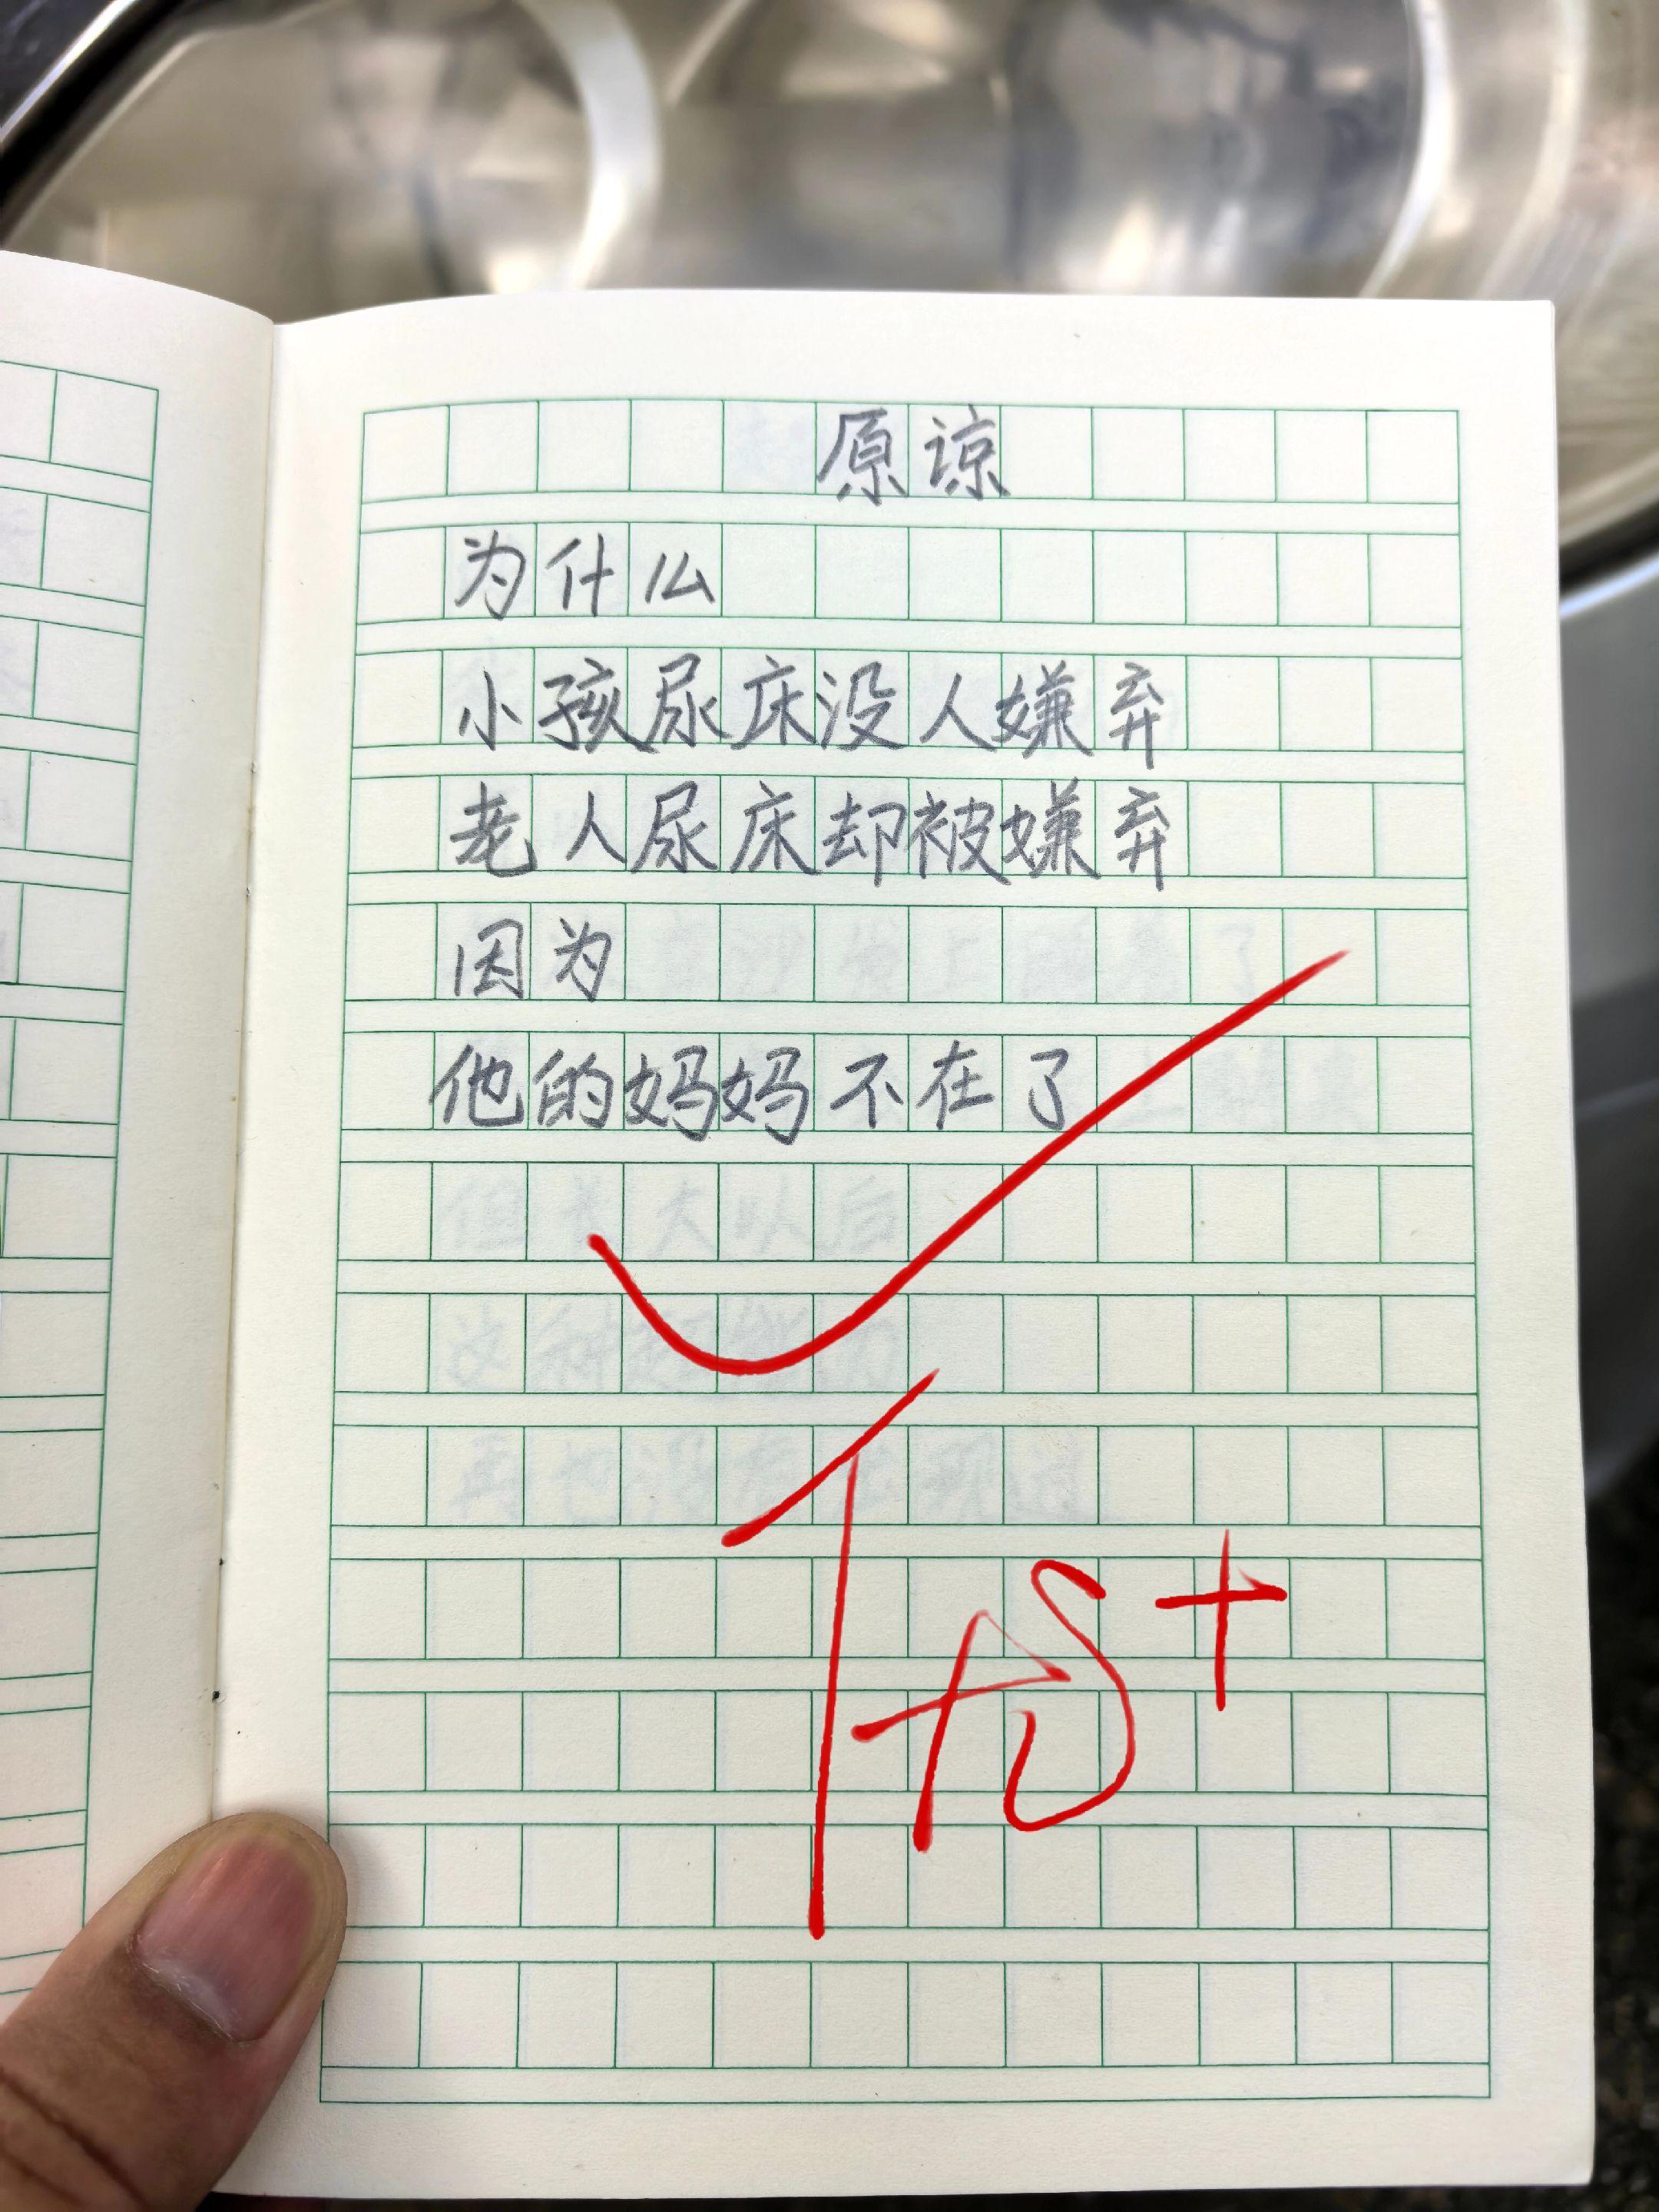 原谅
为什么
小孩尿床没人嫌弃
老人尿床却被嫌弃
因为
他的妈妈不在了